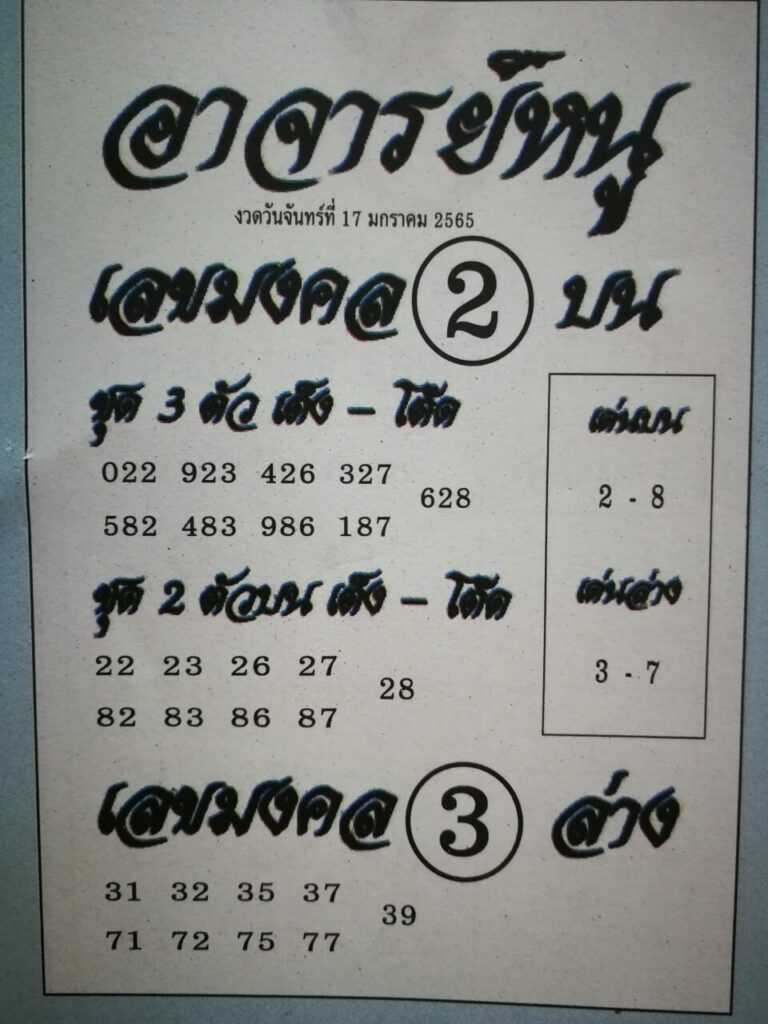 อาจารย์หนู
งวดวันจันทร์ที่ 17 มกราคม 2565
เลขมงคล 2 บน
ชุด 3 ตัว เต็ง – โต๊ด
022 923 426 327
628
582 483 986 187
เด่นบน
2 - 8
ชุด 2 ตัวบน เต็ง – โต๊ด
22 23 26 27
28
82 83 86 87
เด่นล่าง
3 - 7
เลขมงคล 3 ล่าง
31 32 35 37
39
71 72 75 77